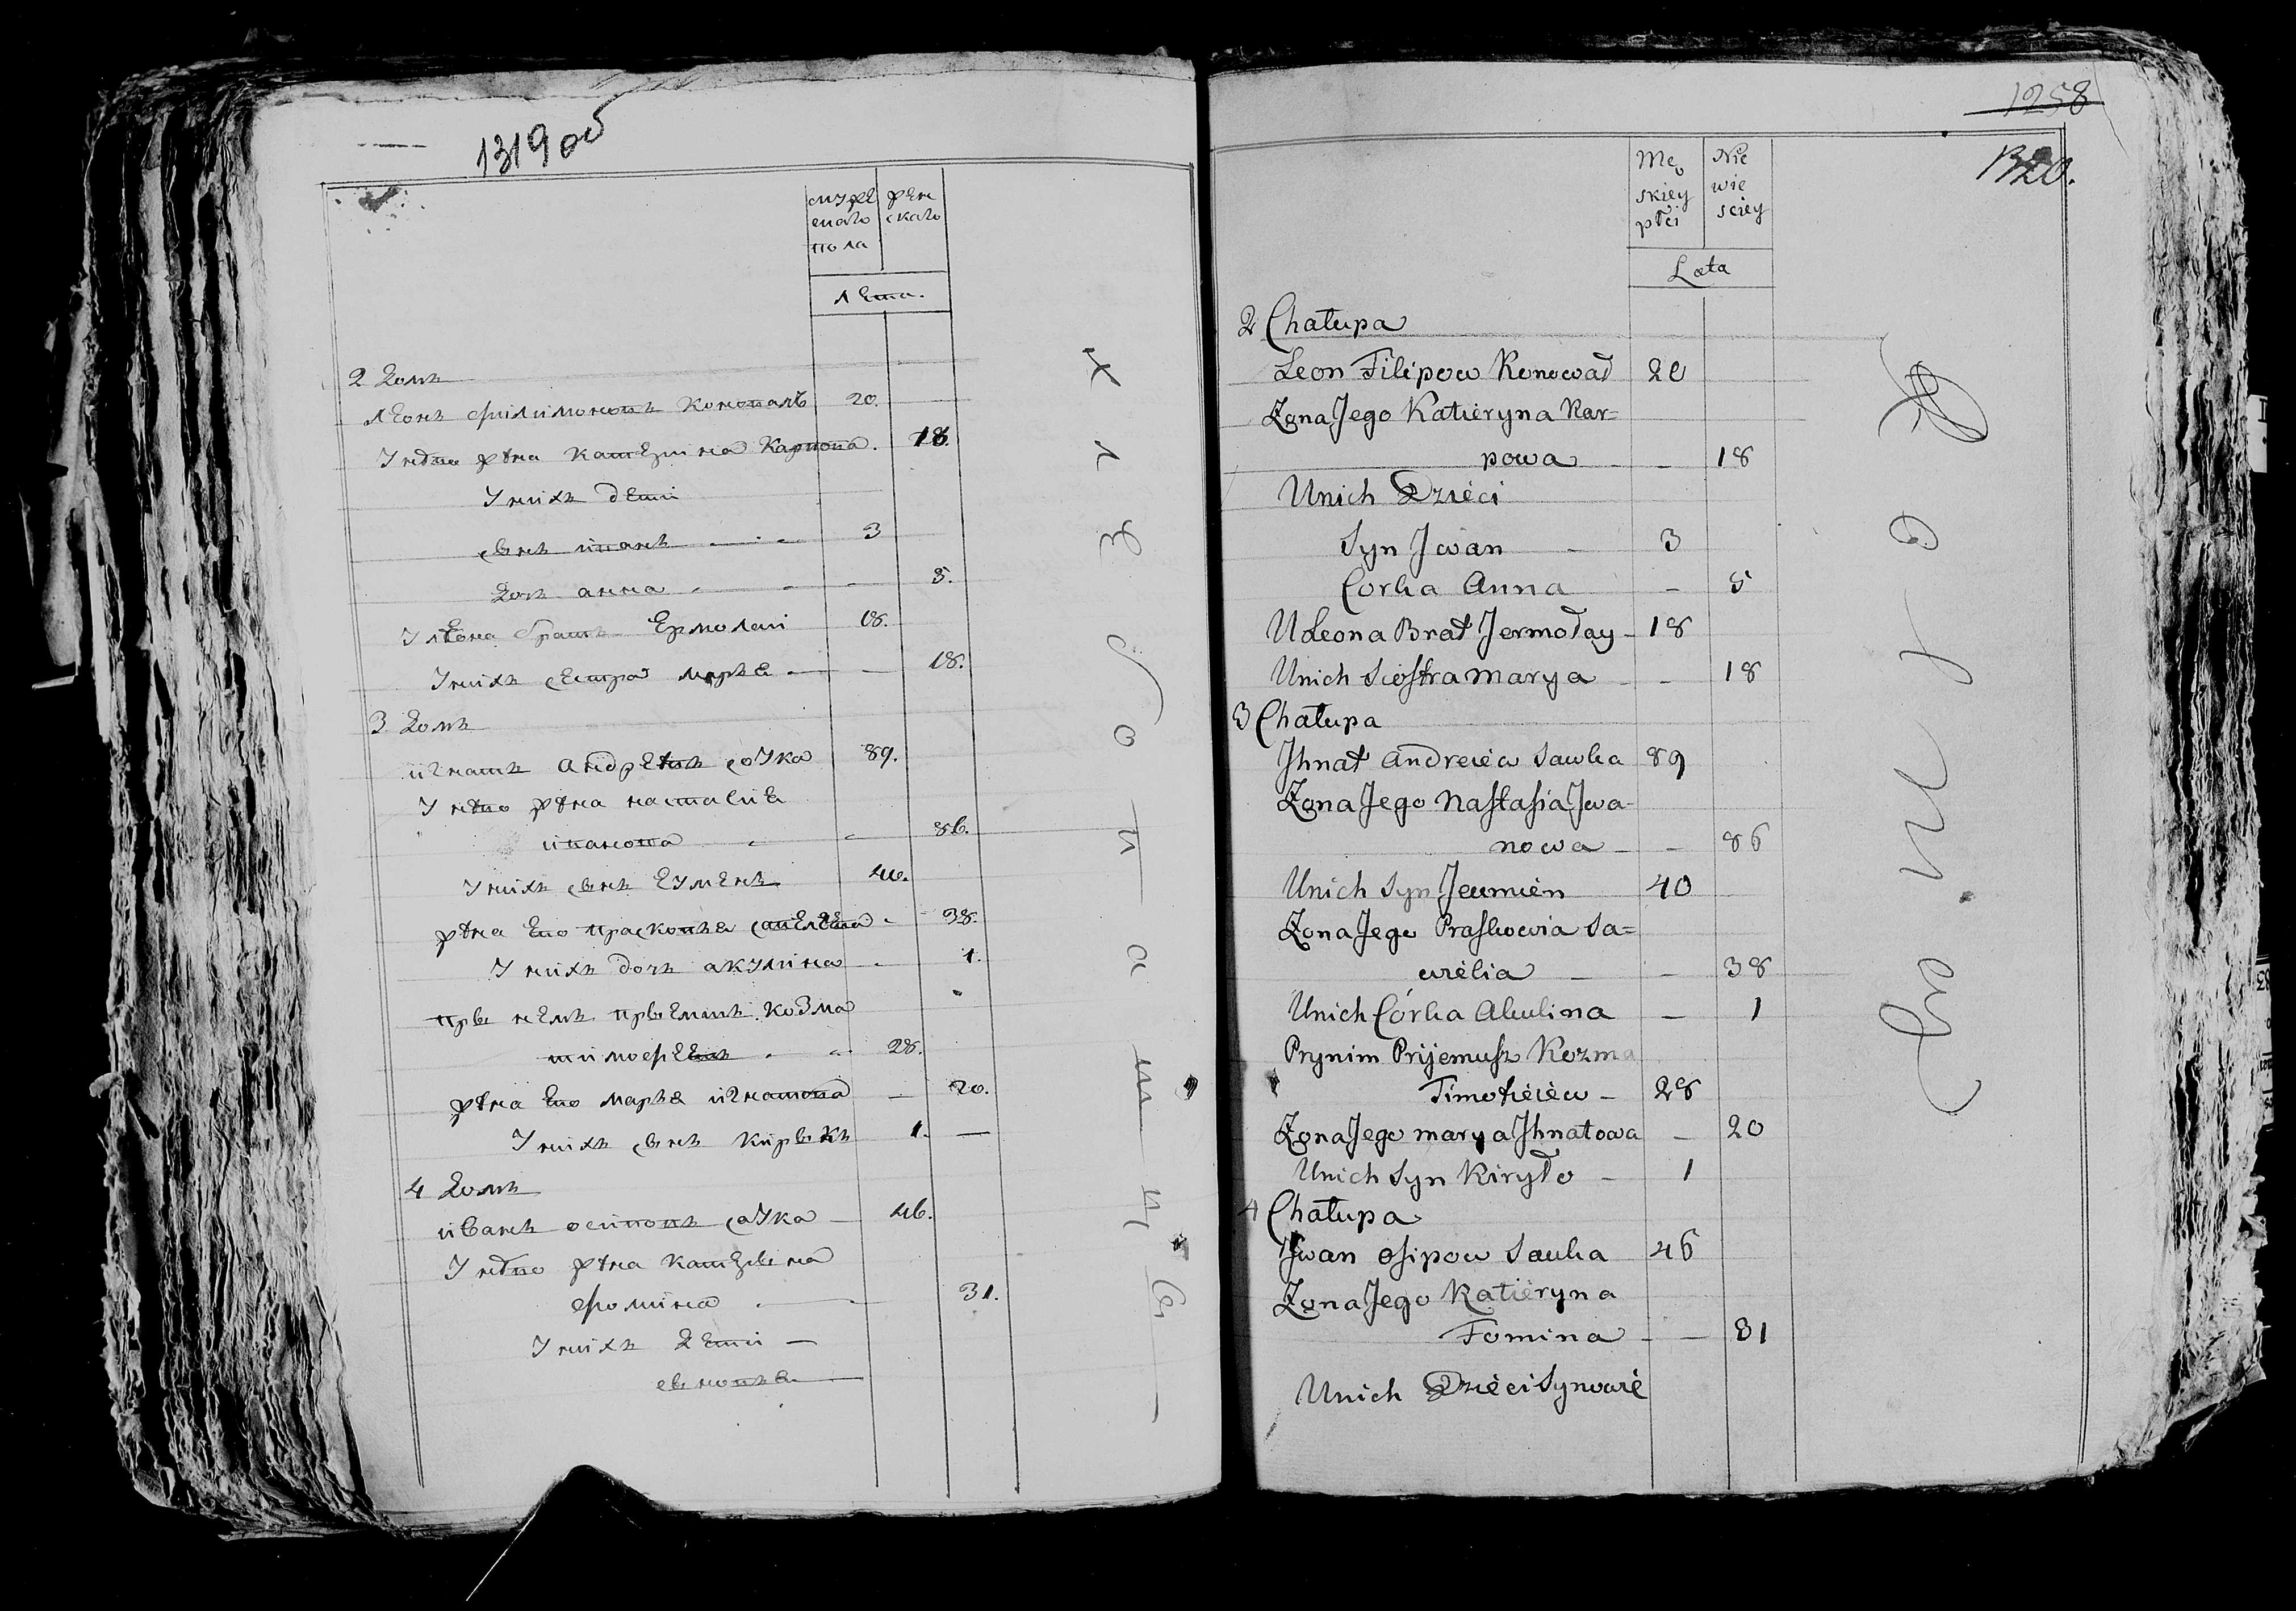 1319 об
мужескаго пола
женскаго
лета.
2 Домъ
леонъ филимоновъ коновалъ 20.
У него жена катерина карпова. 18.
У нихъ дети
сынъ иванъ 3
Дочь анна 5.
У леона братъ Ермолаи 18.
У нихъ сестра марья 18.
3 Домъ
игнатъ андреевъ саука 89.
У него жена настасия
иванова 86.
У нихъ сынъ еуменъ 40.
жена Ево прасковья савелева 38.
У нихъ дочь акулина 1.
при немъ приемышъ козма
тимофеевъ 28.
жена Ево марья игнатова 20.
У нихъ сынъ кирыкъ 1.
4 Домъ
иванъ осиповъ саука 46.
У него жена катерина
фомина 31.
У нихъ Дети
сыновья
1258
1320.
Męskiey płci
Niewiesciey
Lata
2 Chałupa
Leon Filipow Konował 20
Zona Jego Katieryna Kar=
powa 18
Unich Dzieci
Syn Jwan 3
Corka Anna 5
U Leona Brat Jermołay 18
Unich Siostra Marya 18
3 Chałupa
Jhnat Andreiew Sawka 89
Zona Jego Nastasia Jwa-
nowa 86
Unich Syn Jeumien 40
Zona Jego Praskowia Sa=
wielia 38
Unich Córka Akulina 1
Prynim Prijemysz Kozma
Timofieiew 28
Zona Jego Marya Jhnatowa 20
Unich Syn Kiryło 1
4 Chałupa
Jwan Osipow Sauka 46
Zona Jego Katieryna
Fomina 31
Unich Dzieci Synowie